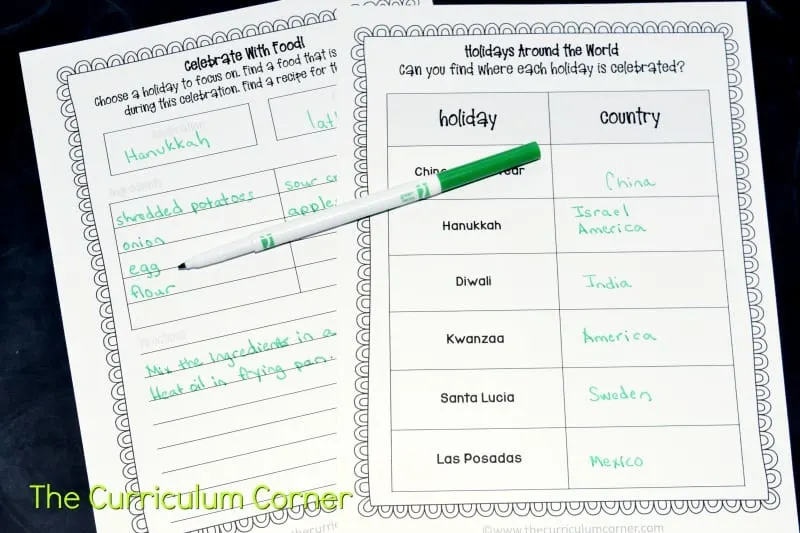 Celebrate With Food!
Choose a holiday to focus on. Find a food that is
during this celebration. Find a recipe for
Hanukkah
Ingredients
shredded potatoes
onion
egg
flour
sour
apple
Directions
Mix the ingredients in a
Heat oil in frying pan.
Holidays Around the World
Can you find where each holiday is celebrated?
holiday country
China
Hanukkah Israel
America
Diwali India
Kwanzaa America
Santa Lucia Sweden
Las Posadas Mexico
The Curriculum Corner
©www.thecurriculumcorner.com